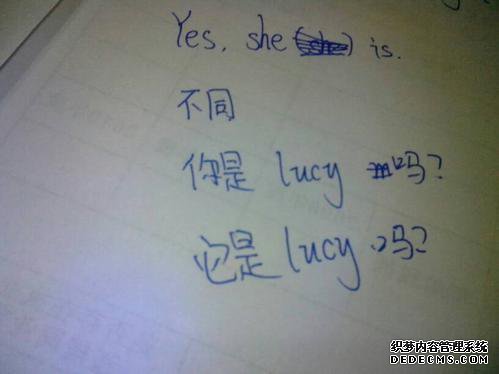 Yes, she (she) is.
不同
你是 lucy 吗?
它是 lucy 吗?
织梦内容管理系统
DEDECMS.COM